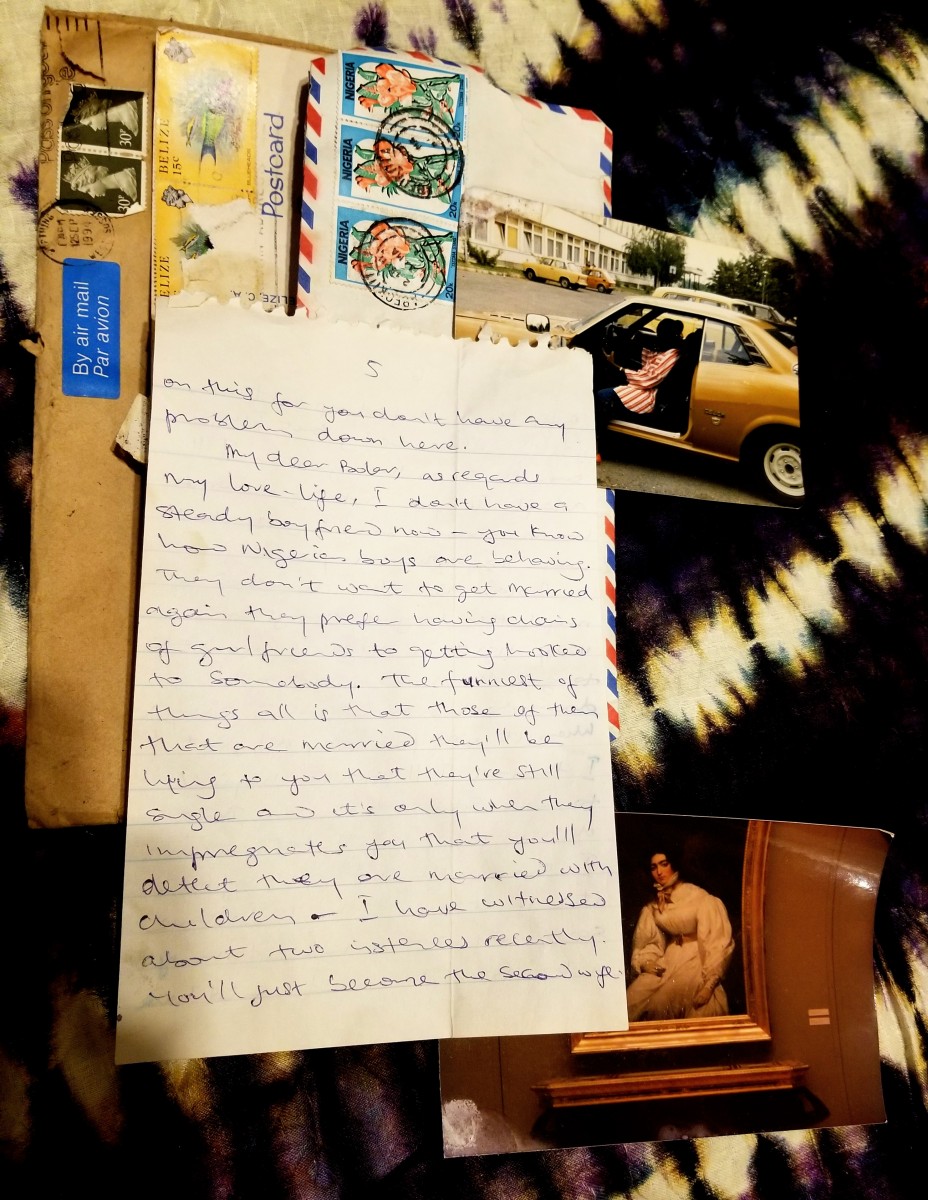 30P
30P
By air mail
Par avion
BELIZE
15c
ELIZE
Postcard
LIZE, C.A.
NIGERIA
20k
NIGERIA
20k
NIGERIA
20k
5
on this for you don't have any
problem down here.
My dear, as regards
my love-life, I don't have a
steady boyfriend now – you know
how Nigerian boys are behaving.
They don't want to get married
again they prefer having chains
of girlfriends to getting hooked
to Somebody. The funniest of
things all is that those of them
that are married they'll be
lying to you that they're still
single and it's only when they
impregnates you that you'll
detect they are married with
children – I have witnessed
about two recently.
You'll just become the second wife.